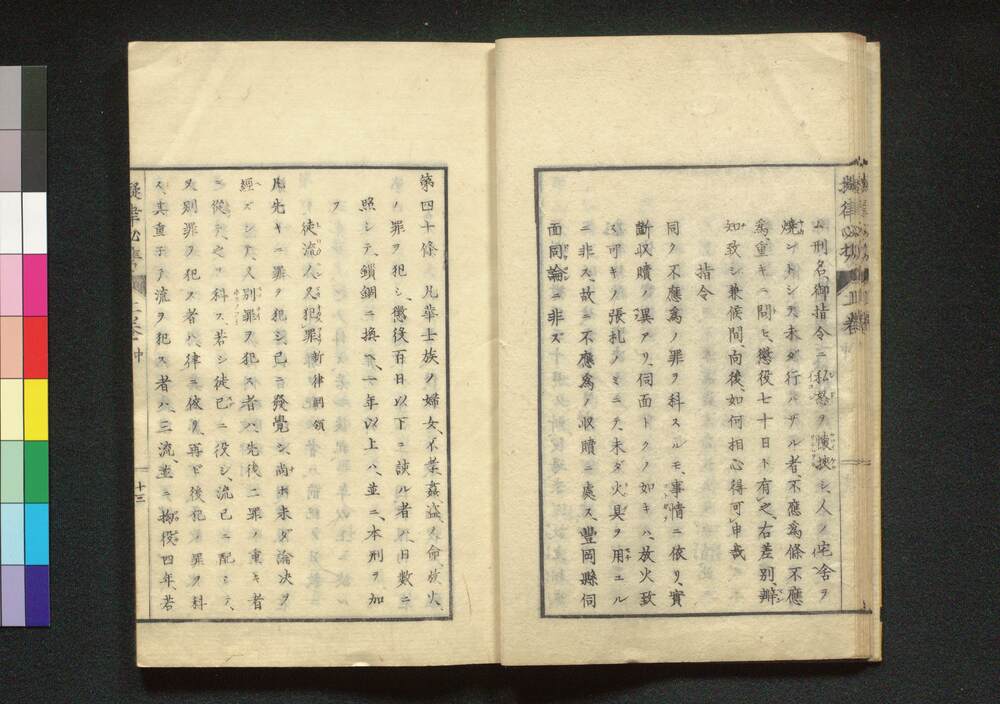 刑名、御指令ニ、私怒ヲ懐挾シ、人ノ宅舎ヲ
燒ントシテ、未ダ行ハザル者、不應爲條、不應
爲重キニ問ヒ、懲役七十日ト有之、右差別、辨
知致シ兼候間、向後、如何相心得可申哉
指令
同ク不應爲ノ罪ヲ科スルモ、事情ニ依リ、實
斷収贖ノ異アリ、伺面トクノ如キハ、放火致
ス可キノ張札ノミニテ、未ダ火具ヲ用ユル
ニ非ス、故ニ不應爲ノ収贖ニ處ス、豐岡縣伺
面同論ニ非ズ
第四十條、凡華士族ノ婦女、不業、姦盗、人命、放火、
ノ罪ヲ犯シ、懲役百日以下ニ該ル者、日數ニ
照シテ、鎖錮ニ換ヘ、一年以上ハ、並ニ、本刑ヲ加
フ
徒流人又犯罪 新律綱領
凡先キニ罪ヲ犯シ、已ニ發覺シ、尚ホ未ダ論決ヲ
經ズシテ、又別罪ヲ犯ス者ハ、先後二罪ノ重キ者
ニ從テ、之ヲ科ス、若シ徒已ニ役シ、流已ニ配シテ、
又別罪ヲ犯ス者ハ、律ニ依リ、再ビ後犯ノ罪ヲ科
ス、其重子テ流ヲ犯ス者ハ、三流、並ニ拘役四年、若
十三